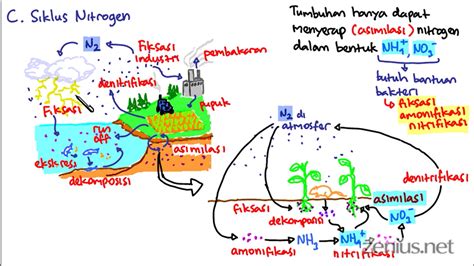 C. Siklus Nitrogen
N2
Fiksasi
industri
pembakaran
denitrifikasi
Fiksasi
pupuk
run
off
asimilasi
ekskresi
dekomposisi
Tumbuhan hanya dapat
menyerap (asimilasi) nitrogen
dalam bentuk NH4+, NO3-
butuh bantuan
bakteri
↳ fiksasi
amonifikasi
nitrifikasi
N2 di
atmosfer
denitrifikasi
asimilasi
fiksasi
dekomposisi
NO3-
amonifikasi
NH3
NH4+
nitrifikasi
zenius.net